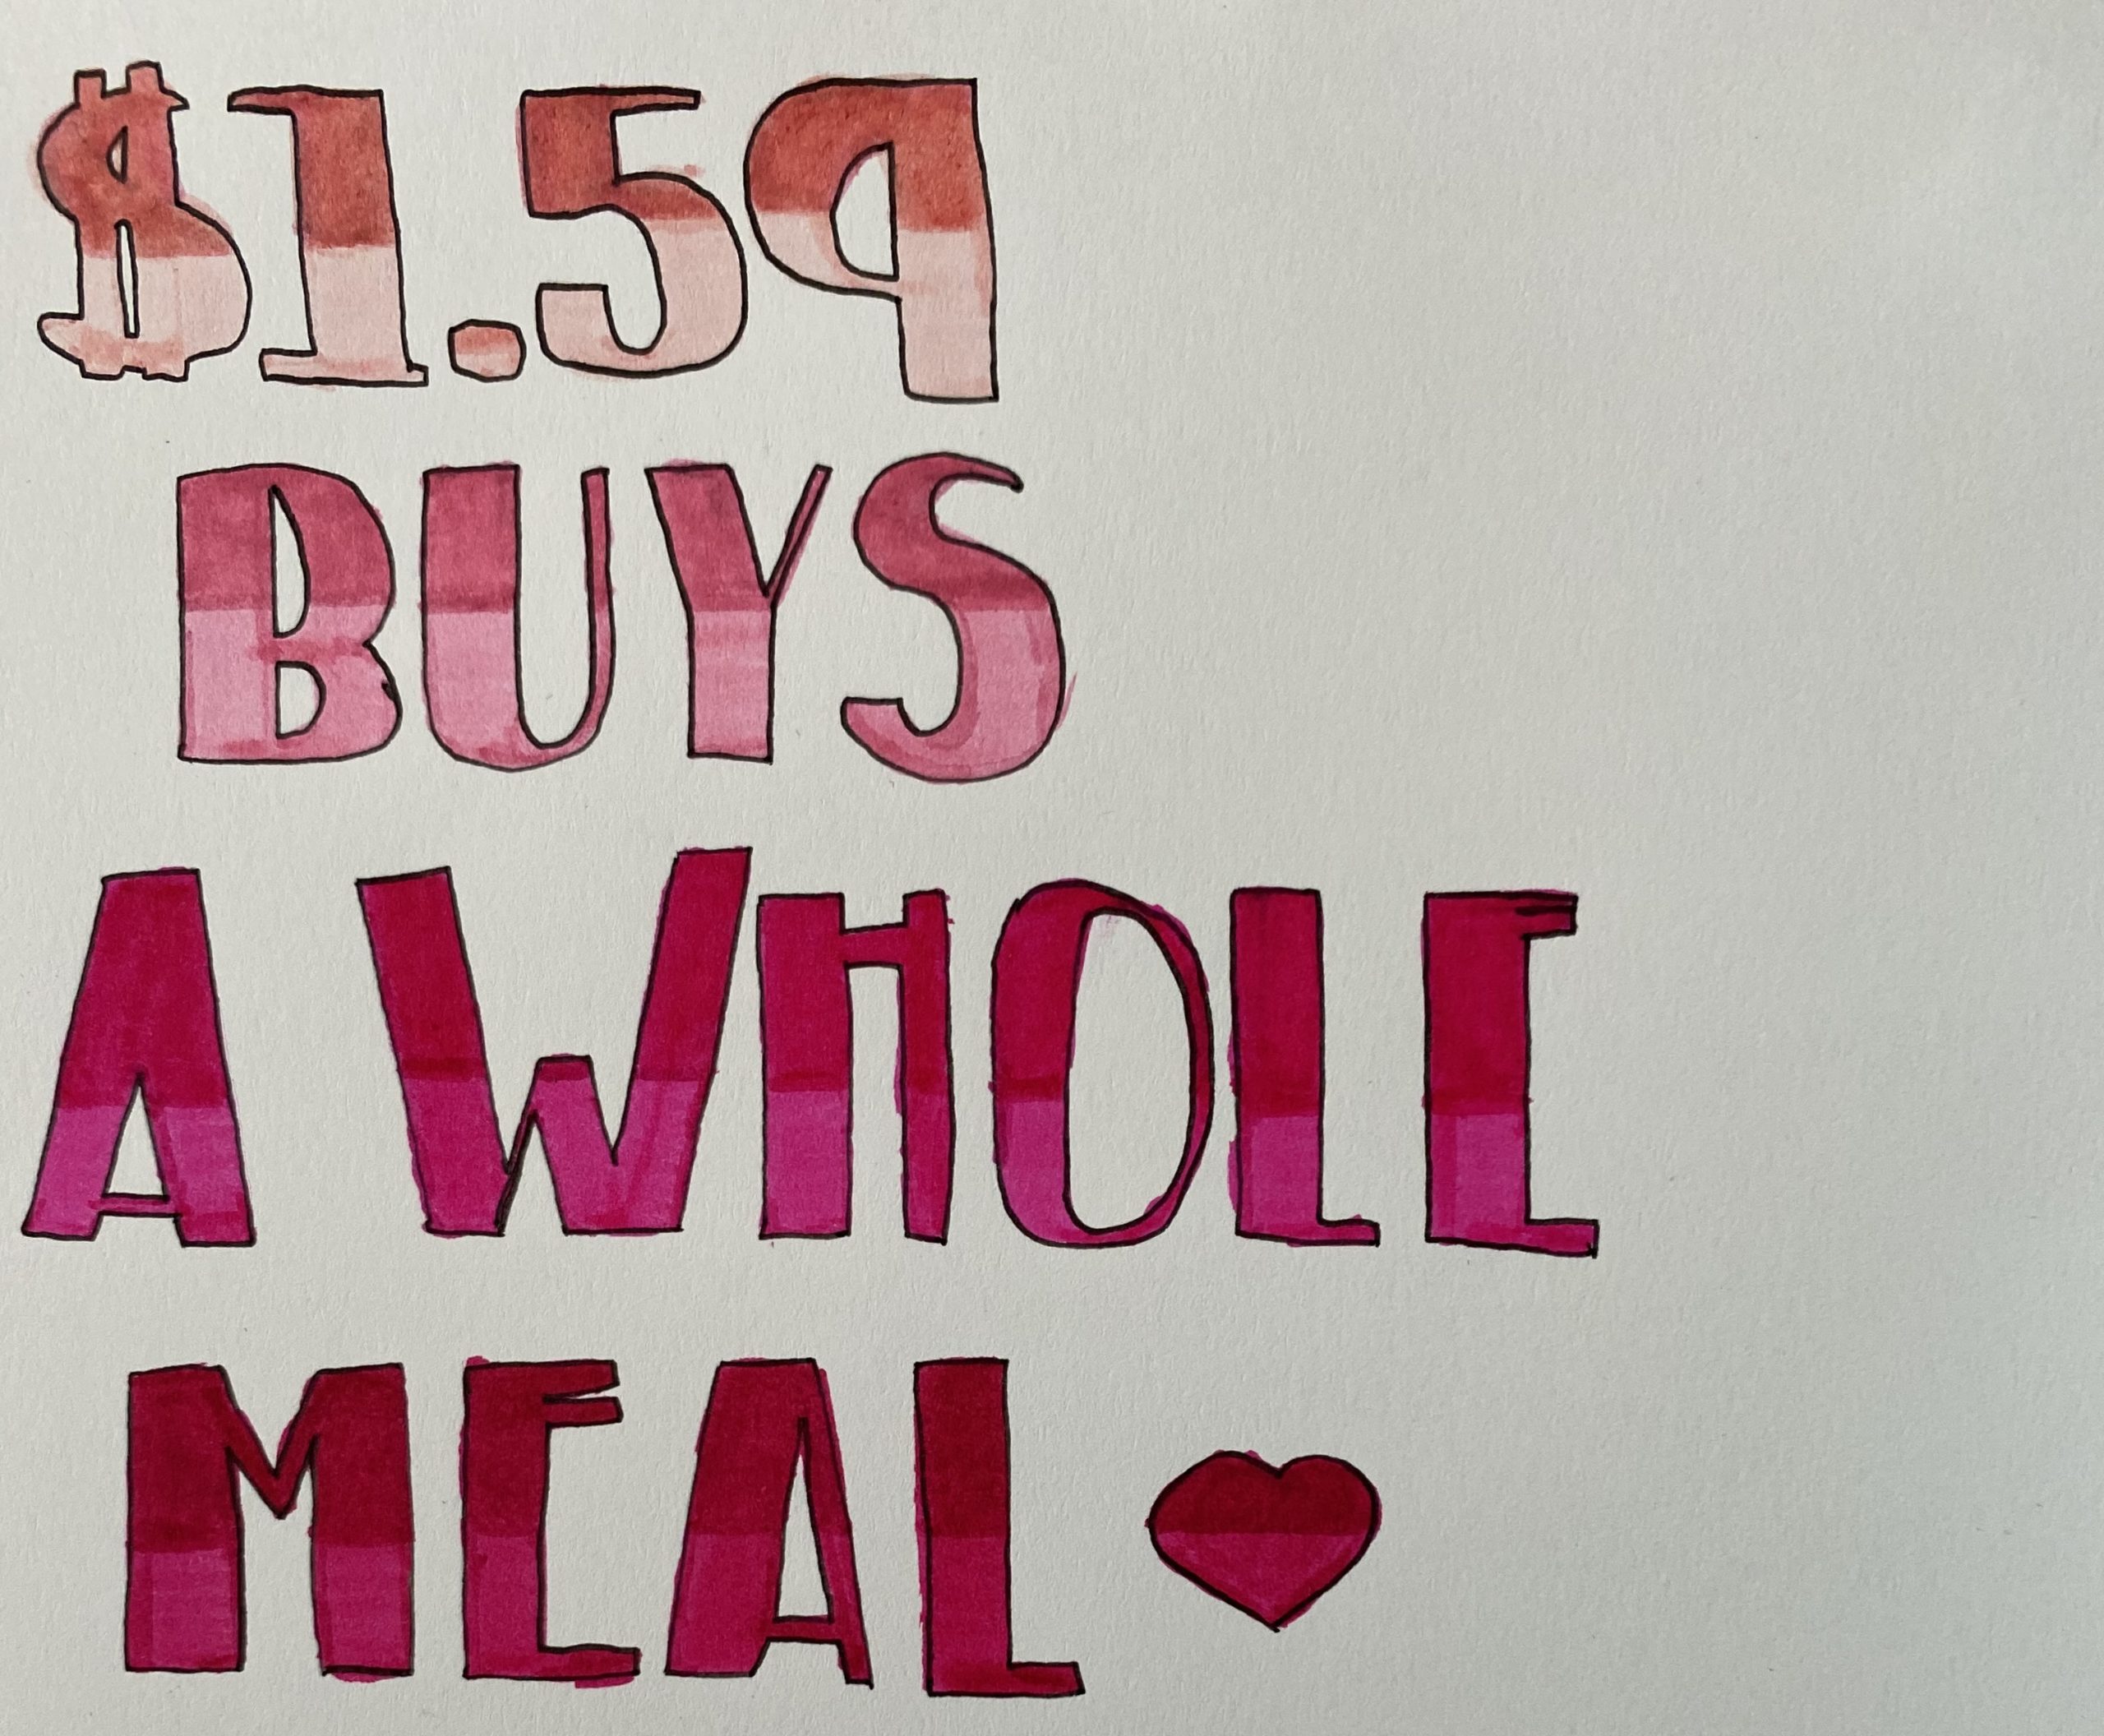 $1.59
BUYS
A WHOLE
MEAL ♥